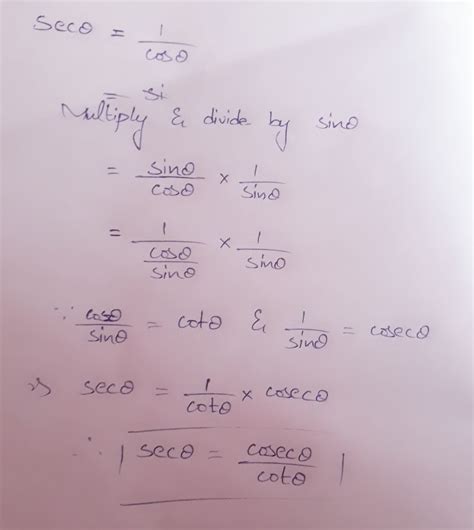 secθ = 1/cosθ
= si
Multiply & divide by sinθ
= sinθ/cosθ × 1/sinθ
= 1/(cosθ/sinθ) × 1/sinθ
∵ cosθ/sinθ = cotθ & 1/sinθ = cosecθ
⇒ secθ = 1/cotθ × cosecθ
∴ | secθ = cosecθ/cotθ |